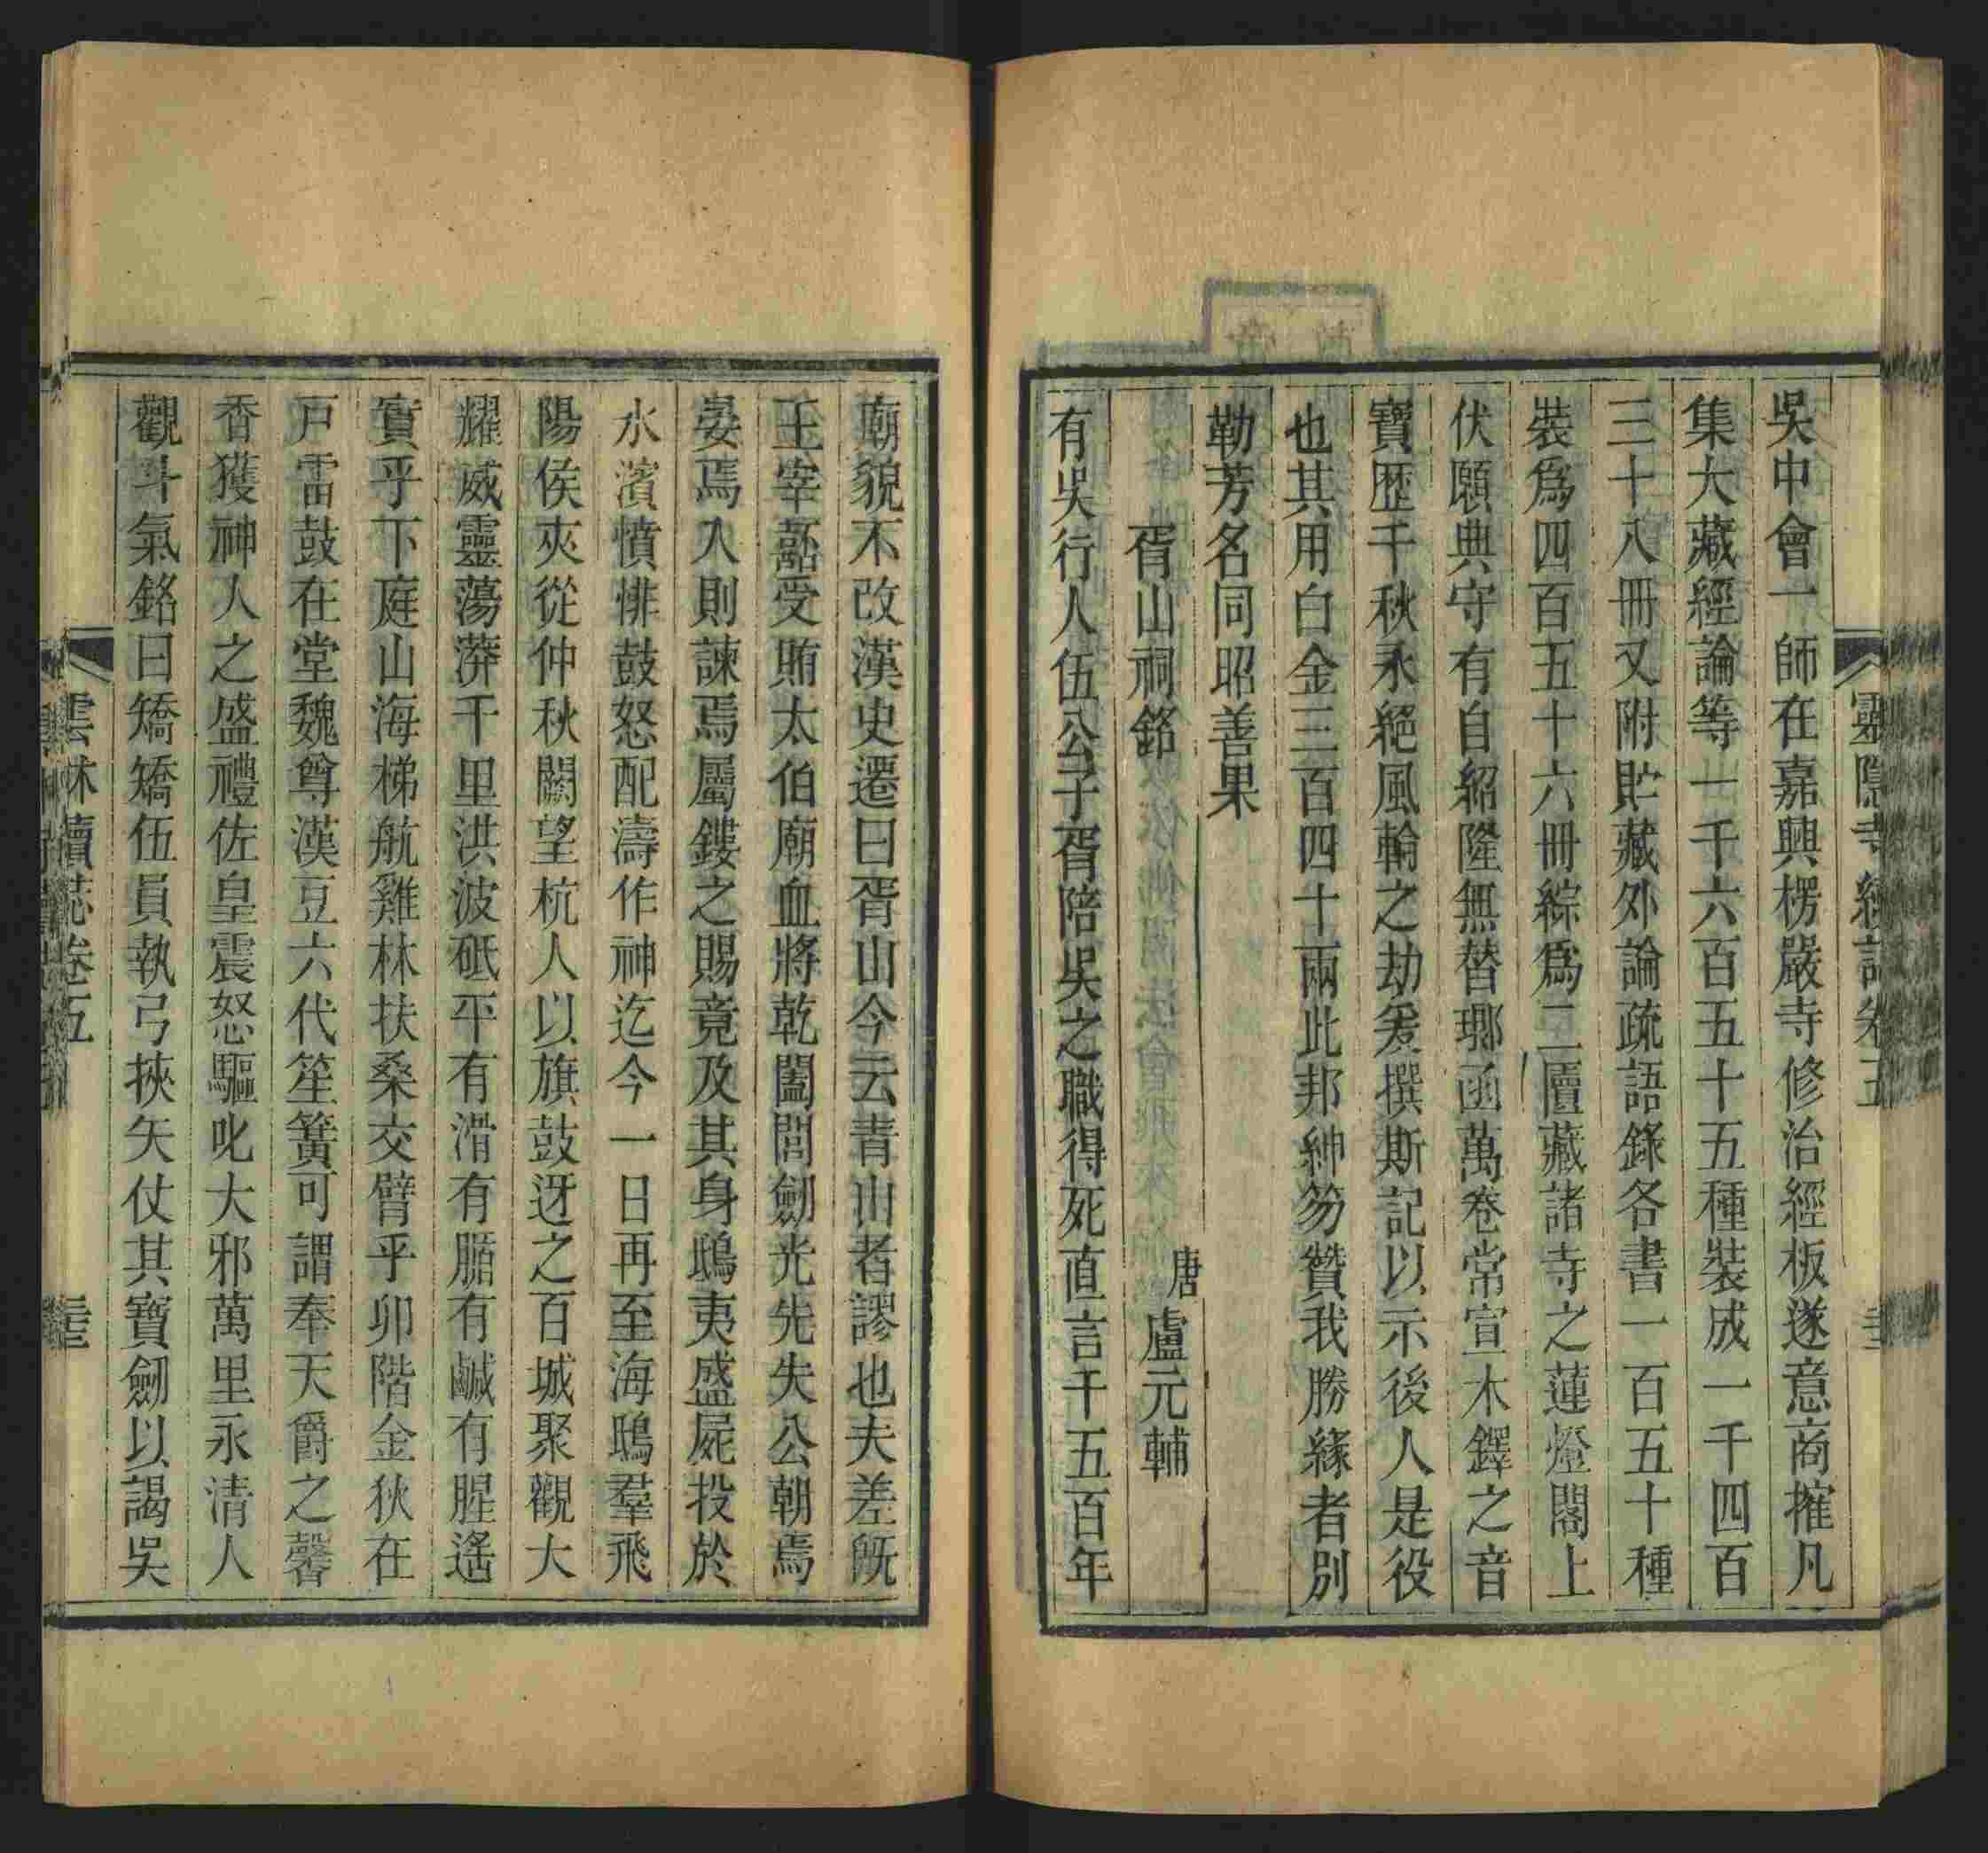 吳中會一師在嘉興楞嚴寺修治經板遂意商搉凡
集大藏經論等一千六百五十五種裝成一千四百
三十八冊又附貯藏外論疏語錄各書一百五十種
裝爲四百五十六冊綜爲二匵藏諸寺之蓮燈閣上
伏願典守有自紹隆無替瑯函萬卷常宣木鐸之音
寶歷千秋永絕風輪之劫爰撰斯記以示後人是役
也其用白金三百四十兩此邦紳笏贊我勝緣者別
勒芳名同昭善果
胥山祠銘 唐 盧元輔
有吳行人伍公子胥陪吳之職得死直言千五百年
廟貌不改漢史遷曰胥山今云青山者謬也夫差旣
王宰嚭受賄太伯廟血將乾闔閭劒光先失公朝焉
晏焉入則諫焉屬鏤之賜竟及其身鴟夷盛屍投於
水濱憤悱鼓怒配濤作神迄今一日再至海鴟羣飛
陽侯夾從仲秋闕望杭人以旗鼓迓之百城聚觀大
耀威靈蕩漭千里洪波砥平有滑有腯有鹹有腥遙
實乎下庭山海梯航雞林扶桑交臂乎卯階金狄在
戸雷鼓在堂魏尊漢豆六代笙簧可謂奉天爵之馨
香獲神人之盛禮佐皇震怒驅叱大邪萬里永清人
觀斗氣銘曰矯矯伍員執弓挾矢仗其寶劒以謁吳
雲林續誌卷五